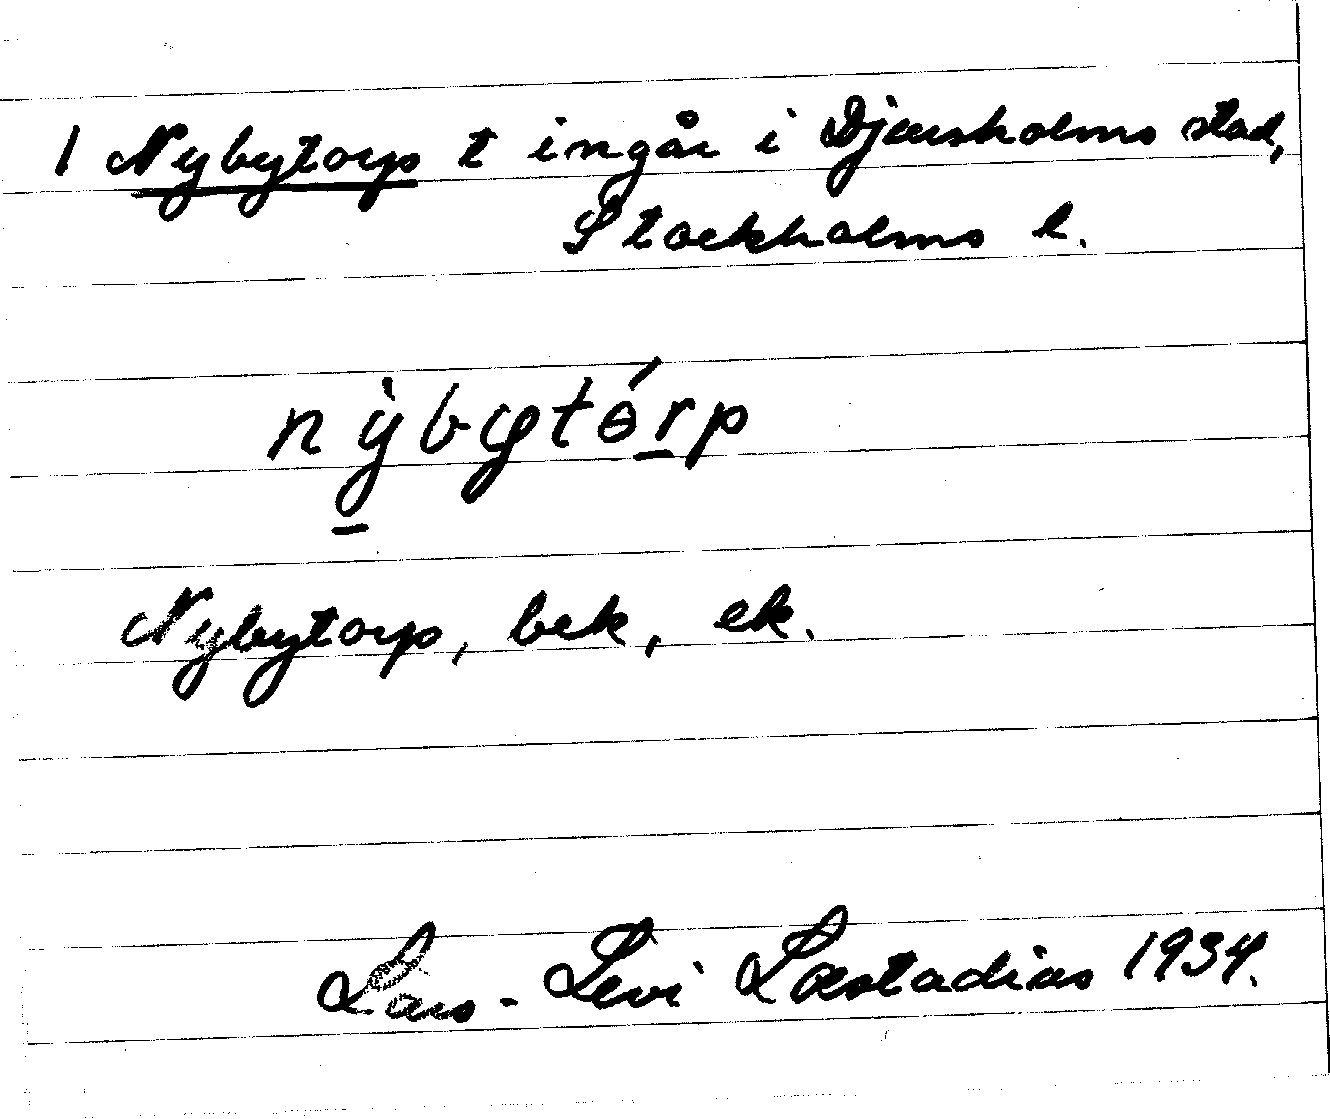 1 Nybytorp t ingår i Djursholms stad,
Stockholms l.
nỳbytɵ́rp
Nybytorp, bek, ek.
Lars-Levi Læstadius 1934.